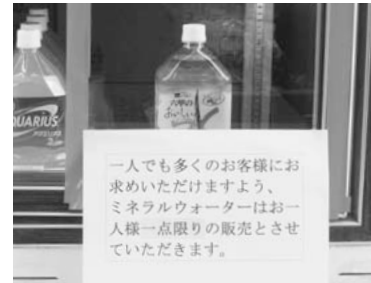 QUARIUS
六甲の
おいしい
一人でも多くのお客様にお
求めいただけますよう、
ミネラルウォーターはお一
人様一点限りの販売とさせ
ていただきます。